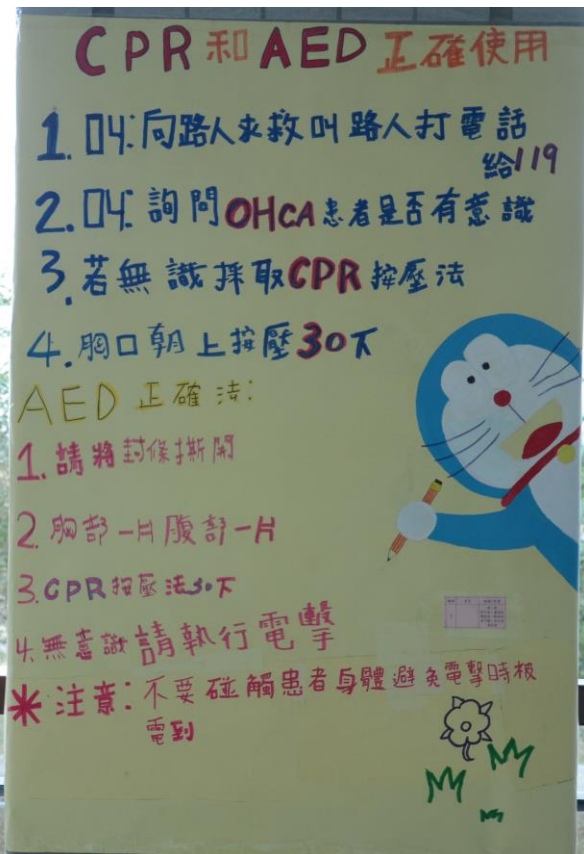 CPR和AED正確使用
1.叫:向路人求救叫路人打電話
給119
2.叫:詢問OHCA患者是否有意識
3.若無識採取CPR按壓法
4.胸口朝上按壓30下
AED正確法:
1.請將封條撕開
2.胸部一片腹部一片
3.CPR按壓法30下
4.無意識請執行電擊
*注意:不要碰觸患者身體避免電擊時被
電到